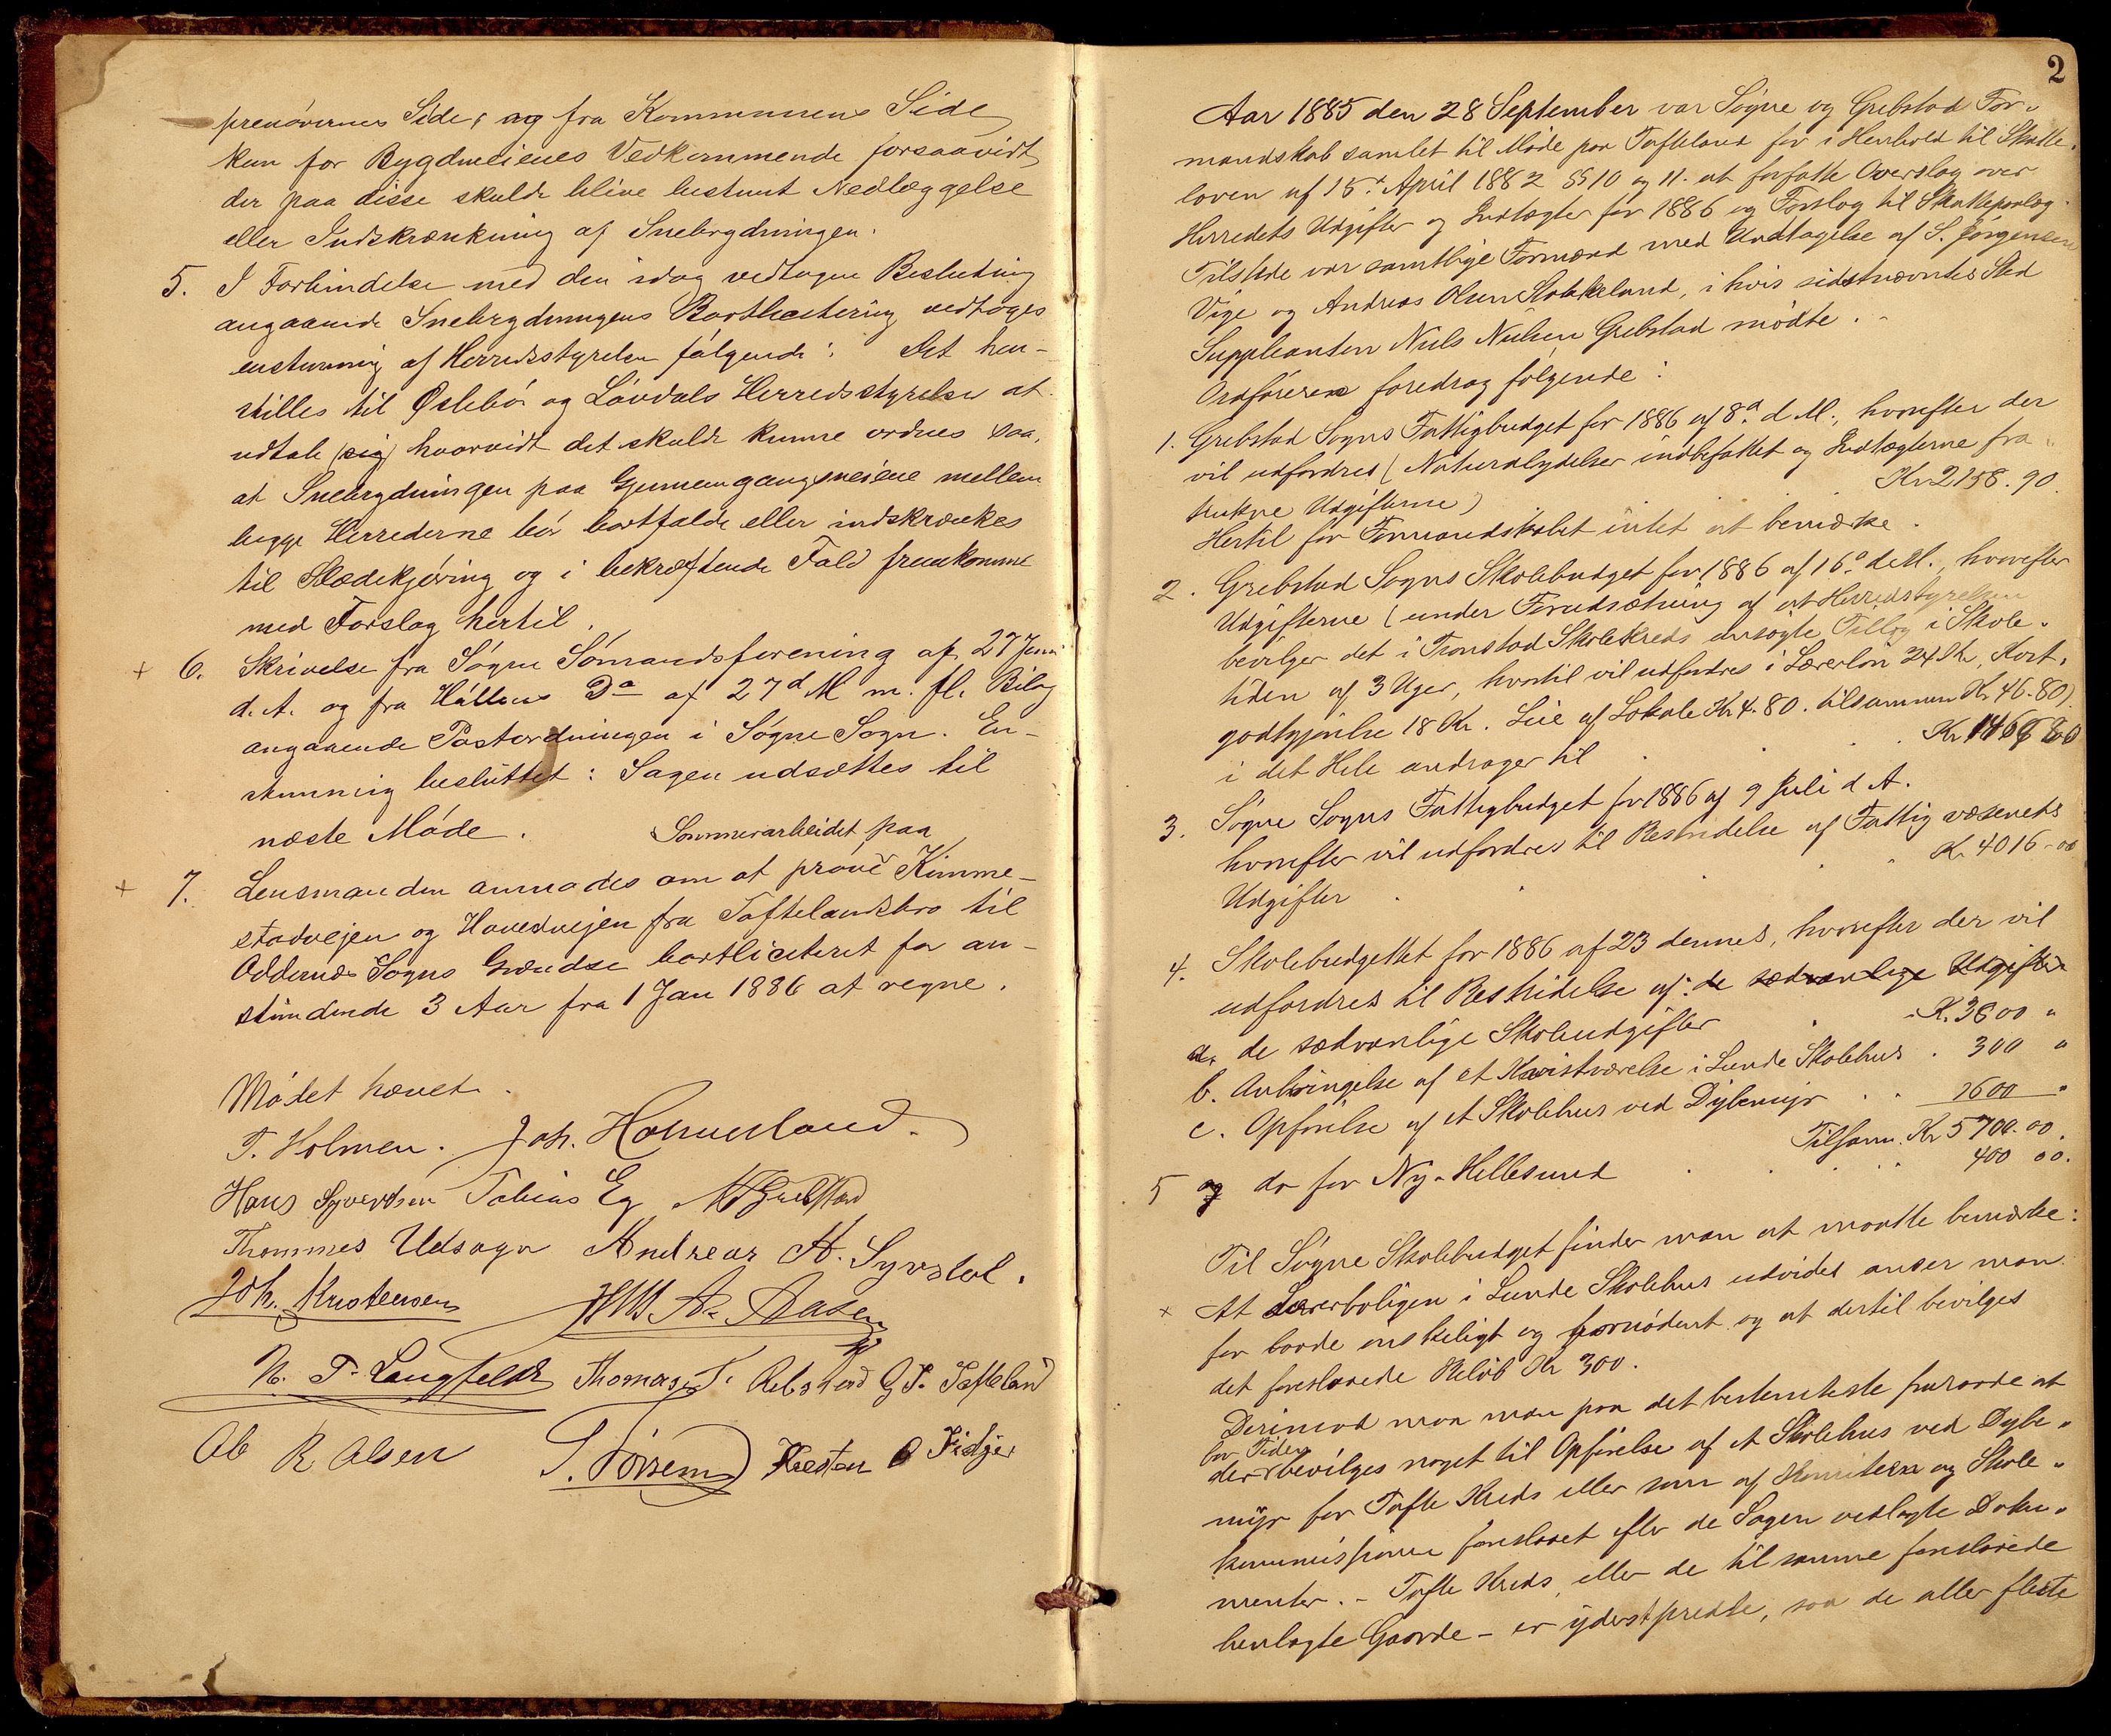 prenörernes Side, og fra Kommunens Side
kun for Bygdeveienes Vedkommende forsaavidt
der paa disse skulde blive bestemt Nedlæggelse
eller Indskrænkning af Snebrydningen.
5. I Forbindelse med den idag vedtagne Beslutning
angaaende Snebrydningens Bortlicitering vedtoges
enstemmig af Herredsstyrelsen følgende: Det hen-
stilles til Øslebö og Lövdals Herredsstyrelse at
udtale sig hvorvidt det skulde kunne ordnes saa,
at Snebrydningen paa Gjennemgangsveiene mellem
begge Herrederne bör bortfalde eller indskrænkes
til Slædekjöring og i bekræftende Fald fremkomme
med Forslag hertil.
+ 6. Skrivelse fra Sögne Sömandsforening af 27 Juni
d. A. og fra Hållens Do af 27d M m. fl. Bilag
angaaende Postordningen i Sögne Sogn. En-
stemmig besluttet: Sagen udsættes til
næste Möde.
Sommerarbeidet paa
+ 7. Lensmanden anmodes om at pröve Kimme-
stadvejen og Hovedvejen fra Toftelandsbro til
Oddernes Sogns Grændse bortliciteret for an-
stundende 3 Aar fra 1 Jan 1886 at regne.
Mödet hævet.
T. Holmen. Joh. Hammerland.
Hans Syvertsen Tobias Eg N Grebstad
Thommes Udsogn Andreas A. Syrstøl.
Joh. Kristensen Aasen
N. T. Langfeldt Thomas T. Repstad G. T. Tofteland
Ab R Olsen T. Törresen Kresten O Fidjer
2
Aar 1885 den 28 September var Sögne og Grebstad For-
mandskab samlet til Möde paa Tofteland for i Henhold til Skatte-
loven af 15d April 1882 §§ 10 og 11. at forfatte Overslag over
Herredets Udgifter og Indtægter for 1886 og Forslag til Skattepaalæg.
Tilstede var samtlige Formænd med Undtagelse af S. Jörgensen
Vige og Andreas Olsen Stokkeland, i hvis sidstnævntes Sted
Suppleanten Niels Nielsen Grebstad mödte. -
Ordföreren foredrog fölgende:
1. Grebstad Sogns Fattigbudget for 1886 af 8d d. M., hvorefter der
vil udfordres (Naturalydelser indbefattet og Indtægterne fra-
trukne Udgifterne) Kr 2158.90.
Hertil for Formandskabet intet at bemærke.
2. Grebstad Sogns Skolebudget for 1886 af 16d d. M., hvorefter
Udgifterne (under Forudsætning af at Herredsstyrelsen
bevilger det i Tronstad Skolekreds ansögte Tillæg i Skole-
tiden af 3 Uger, hvortil vil udfordres i Lærerlön 24 Kr, Kost-
godtgjörelse 18 Kr. Leie af Lokale Kr 4.80. tilsammen Kr 46.80)
i det Hele andrager til Kr 1466 80
3. Sögne Sogns Fattigbudget for 1886 af 9 Juli d A.
hvorefter vil udfordres til Bestridelse af Fattigvæsenets
Udgifter Kr 4016-00
4. Skolebudgettet for 1886 af 23 dennes, hvorefter der vil
udfordres til Bestridelse af: de sædvanlige Udgifter
a. de sædvanlige Skoleudgifter K. 3800 "
b. Anbringelse af et Kvistværelse i Lunde Skolehus . 300 "
c. Opförelse af et Skolehus ved Dybemyr . . 1600 "
Tilsam. Kr 5700.00.
5 og do for Ny-Hellesund 400 00.
Til Sögne Skolebudget finder man at maatte bemærke:
+ At Lærerboligen i Lunde Skolehus udvides anser man
for baade önskeligt og fornödent og at dertil bevilges
det foreslaaede Belöb Kr 300.
Derimod maa man paa det bestemteste fraraade at
for Tiden
der bevilges noget til Opförelse af et Skolehus ved Dybe-
myr for Tofte Kreds eller som af Komiteen og Skole-
kommissionen foreslaaet efter de Sagen vedlagte Doku-
menter. - Tofte Kreds, eller de til samme foreslaaede
henlagte Gaarde - er yderst spredte, saa de aller fleste